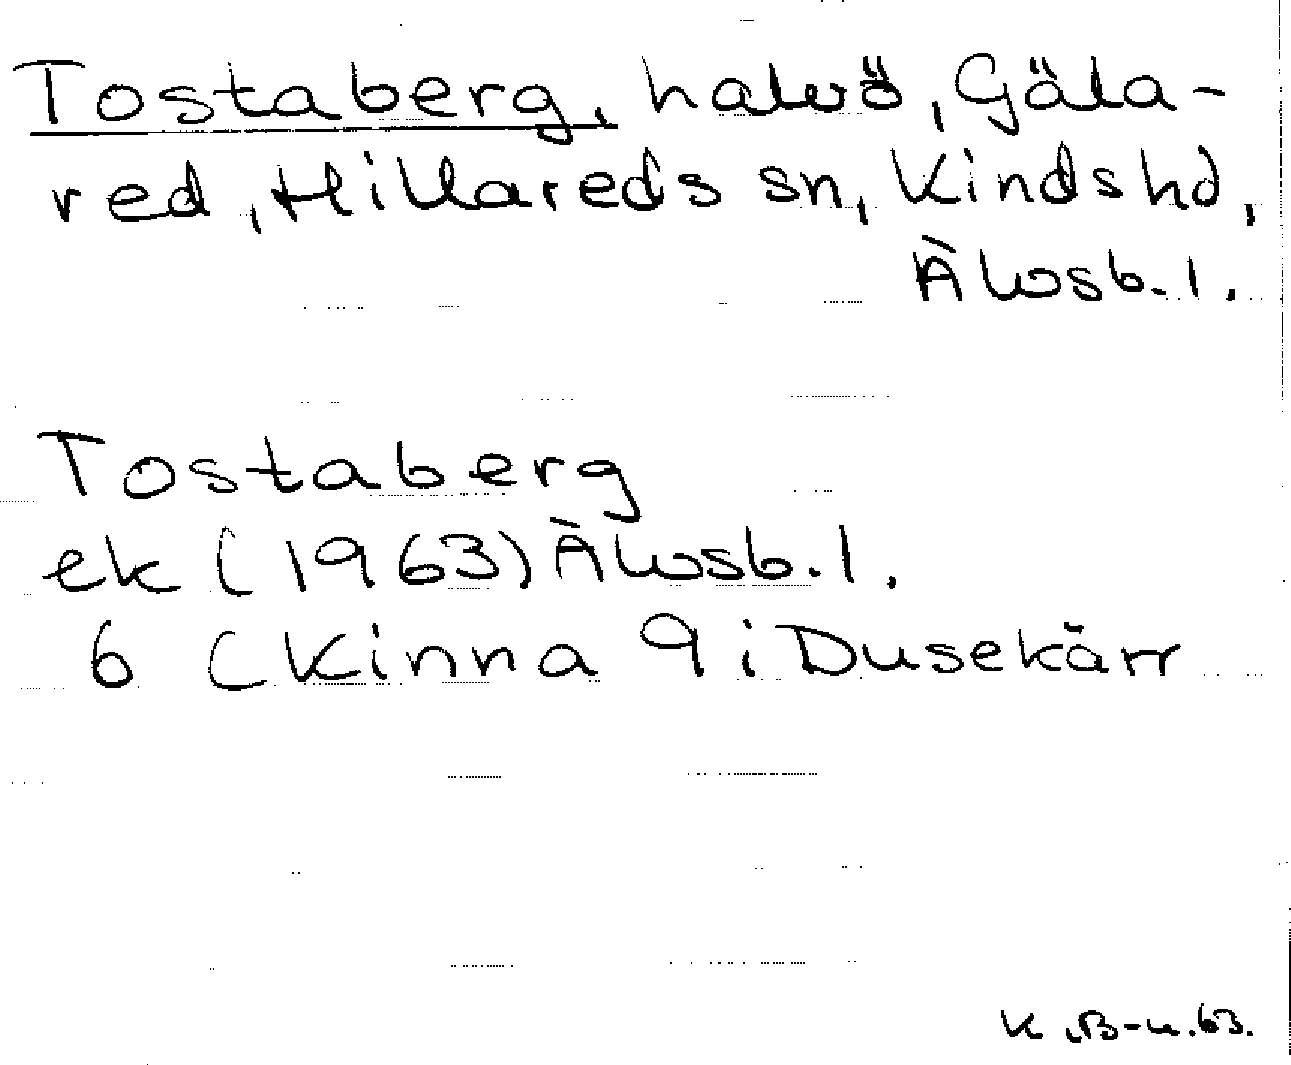 Tostaberg, halvö, Gäla-
red, Hillareds sn, Kinds hd,
Älvsb. l.
Tostaberg
ek (1963) Älvsb. l.
6 (Kinna 9 i Dusekärr
K.B-n.63.